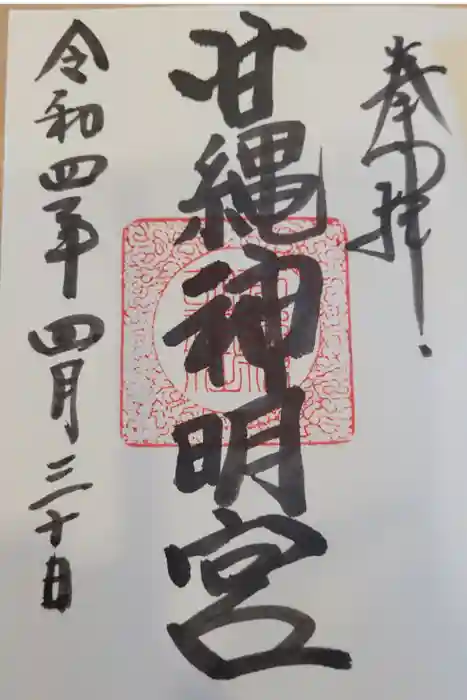 奉拝
甘縄神明宮
令和四年四月三十日